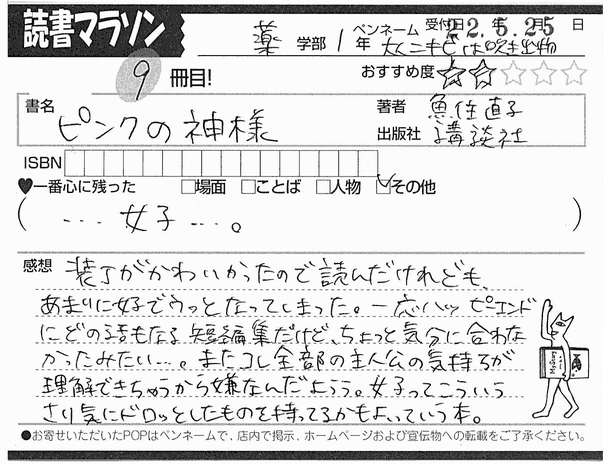 読書マラソン
受付日 22年5月25日
薬 学部 1年 ペンネーム
9 冊目!
おすすめ度 ★★☆☆☆
書名 ピンクの神様
著者 魚住直子
出版社 講談社
ISBN
♥一番心に残った □場面 □ことば □人物 ☑その他
( … 女子 …。 )
感想 装丁がかわいかったので読んだけれども、
あまりに女子でウッとなってしまった。一応ハッピーエンド
にどの話もなる短編集だけど、ちょっと気分に合わな
かったみたい…。またコレ全部の主人公の気持ちが
理解できちゃうから嫌なんだよう。女子ってこういう
さり気にドロッとしたものを持ってるかもよっていう本。
●お寄せいただいたPOPはペンネームで、店内で掲示、ホームページおよび宣伝物への転載をご了承ください。